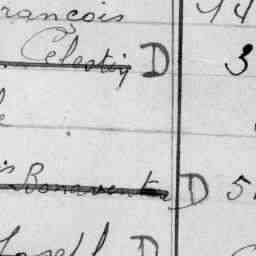 rançois 14
Célestin D 3
e
is
Bonaventure D 5
Joseph D